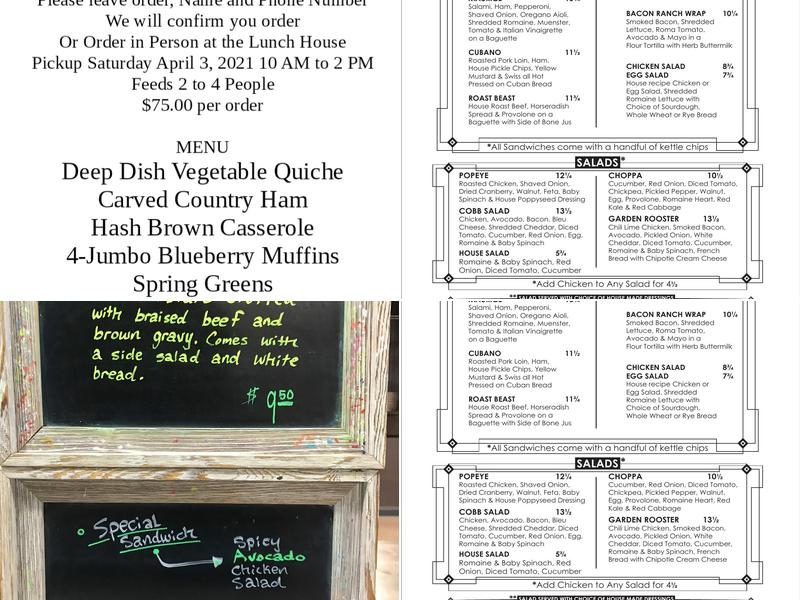 Please leave order, Name and Phone Number
We will confirm you order
Or Order in Person at the Lunch House
Pickup Saturday April 3, 2021 10 AM to 2 PM
Feeds 2 to 4 People
$75.00 per order
MENU
Deep Dish Vegetable Quiche
Carved Country Ham
Hash Brown Casserole
4-Jumbo Blueberry Muffins
Spring Greens
Salami, Ham, Pepperoni,
Shaved Onion, Oregano Aioli,
Shredded Romaine, Muenster,
Tomato & Italian Vinaigrette
on a Baguette
CUBANO 11½
Roasted Pork Loin, Ham,
House Pickle Chips, Yellow
Mustard & Swiss all Hot
Pressed on Cuban Bread
ROAST BEAST 11¾
House Roast Beef, Horseradish
Spread & Provolone on a
Baguette with Side of Bone Jus
BACON RANCH WRAP 10¼
Smoked Bacon, Shredded
Lettuce, Roma Tomato,
Avocado & Mayo in a
Flour Tortilla with Herb Buttermilk
CHICKEN SALAD 8¾
EGG SALAD 7¾
House recipe Chicken or
Egg Salad, Shredded
Romaine Lettuce with
Choice of Sourdough,
Whole Wheat or Rye Bread
*All Sandwiches come with a handful of kettle chips
SALADS*
POPEYE 12¼
Roasted Chicken, Shaved Onion,
Dried Cranberry, Walnut, Feta, Baby
Spinach & House Poppyseed Dressing
COBB SALAD 13½
Chicken, Avocado, Bacon, Bleu
Cheese, Shredded Cheddar, Diced
Tomato, Cucumber, Red Onion, Egg,
Romaine & Baby Spinach
HOUSE SALAD 5¾
Romaine & Baby Spinach, Red
Onion, Diced Tomato, Cucumber
CHOPPA 10½
Cucumber, Red Onion, Diced Tomato,
Chickpea, Pickled Pepper, Walnut,
Egg, Provolone, Romaine Heart, Red
Kale & Red Cabbage
GARDEN ROOSTER 13½
Chili Lime Chicken, Smoked Bacon,
Avocado, Pickled Onion, White
Cheddar, Diced Tomato, Cucumber,
Romaine & Baby Spinach, French
Bread with Chipotle Cream Cheese
*Add Chicken to Any Salad for 4½
**SALAD SERVED WITH CHOICE OF HOUSE MADE DRESSINGS
with braised beef and
brown gravy. Comes with
a side salad and white
bread.
$ 9.50
Special
Sandwich
Spicy
Avocado
Chicken
Salad
Salami, Ham, Pepperoni,
Shaved Onion, Oregano Aioli,
Shredded Romaine, Muenster,
Tomato & Italian Vinaigrette
on a Baguette
CUBANO 11½
Roasted Pork Loin, Ham,
House Pickle Chips, Yellow
Mustard & Swiss all Hot
Pressed on Cuban Bread
ROAST BEAST 11¾
House Roast Beef, Horseradish
Spread & Provolone on a
Baguette with Side of Bone Jus
BACON RANCH WRAP 10¼
Smoked Bacon, Shredded
Lettuce, Roma Tomato,
Avocado & Mayo in a
Flour Tortilla with Herb Buttermilk
CHICKEN SALAD 8¾
EGG SALAD 7¾
House recipe Chicken or
Egg Salad, Shredded
Romaine Lettuce with
Choice of Sourdough,
Whole Wheat or Rye Bread
*All Sandwiches come with a handful of kettle chips
SALADS*
POPEYE 12¼
Roasted Chicken, Shaved Onion,
Dried Cranberry, Walnut, Feta, Baby
Spinach & House Poppyseed Dressing
COBB SALAD 13½
Chicken, Avocado, Bacon, Bleu
Cheese, Shredded Cheddar, Diced
Tomato, Cucumber, Red Onion, Egg,
Romaine & Baby Spinach
HOUSE SALAD 5¾
Romaine & Baby Spinach, Red
Onion, Diced Tomato, Cucumber
CHOPPA 10½
Cucumber, Red Onion, Diced Tomato,
Chickpea, Pickled Pepper, Walnut,
Egg, Provolone, Romaine Heart, Red
Kale & Red Cabbage
GARDEN ROOSTER 13½
Chili Lime Chicken, Smoked Bacon,
Avocado, Pickled Onion, White
Cheddar, Diced Tomato, Cucumber,
Romaine & Baby Spinach, French
Bread with Chipotle Cream Cheese
*Add Chicken to Any Salad for 4½
**SALAD SERVED WITH CHOICE OF HOUSE MADE DRESSINGS